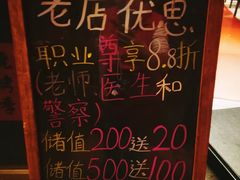 老店优惠
职业尊享8.8折
(老师、医生和
警察)
储值200送20
储值500送100